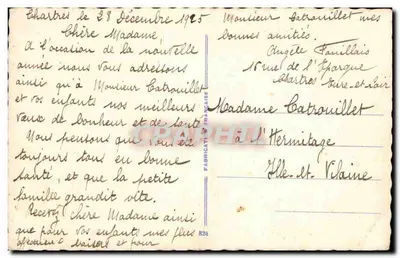 Chartres le 28 Décembre 1925
Chère Madame,
A l'occasion de la nouvelle
année nous vous adressons
ainsi qu'à Monsieur Catrouillet
et vos enfants nos meilleurs
vœux de bonheur et de santé
Nous pensons que vous êtes
toujours tous en bonne
santé, et que la petite
famille grandit vite.
Recevez Chère Madame ainsi
que pour vos enfants mes plus
affectueux baisers et pour
Monsieur Catrouillet mes
bonnes amitiés.
Angèle
16 rue de l'Epargne
Chartres Eure-et-Loir
Madame Catrouillet
à l'Hermitage
Ille-et-Vilaine
FABRICATION FRANÇAISE